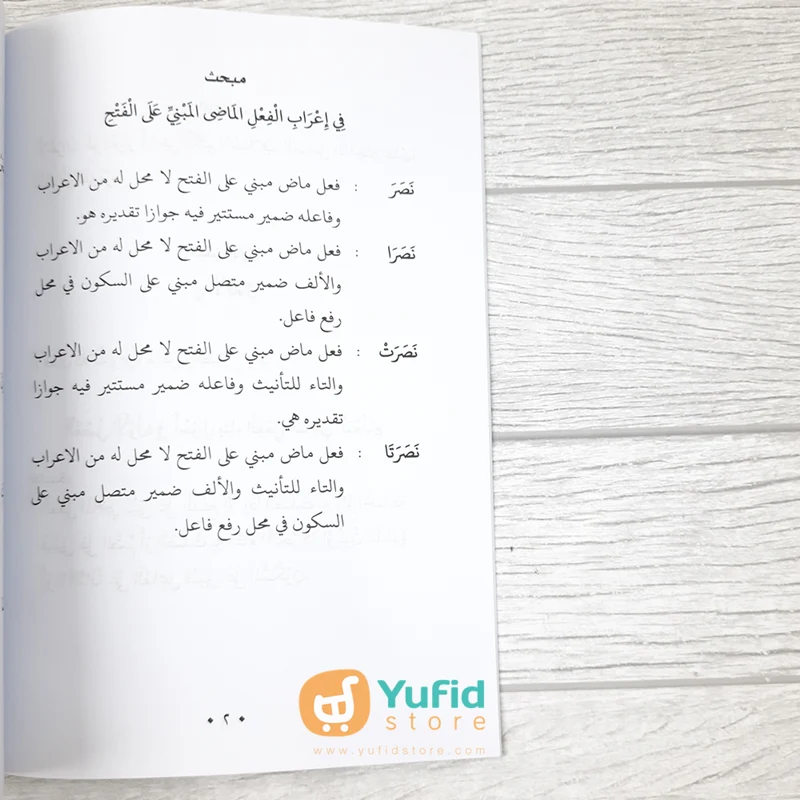 مبحث
فِي إِعْرَابِ الْفِعْلِ الْمَاضِى الْمَبْنِيِّ عَلَى الْفَتْحِ
نَصَرَ : فعل ماض مبني على الفتح لا محل له من الاعراب
وفاعله ضمير مستتير فيه جوازا تقديره هو.
نَصَرَا : فعل ماض مبني على الفتح لا محل له من الاعراب
والألف ضمير متصل مبني على السكون في محل
رفع فاعل.
نَصَرَتْ : فعل ماض مبني على الفتح لا محل له من الاعراب
والتاء للتأنيث وفاعله ضمير مستتير فيه جوازا
تقديره هي.
نَصَرَتَا : فعل ماض مبني على الفتح لا محل له من الاعراب
والتاء للتأنيث والألف ضمير متصل مبني على
السكون في محل رفع فاعل.
• ٢ •
Yufid
store
www.yufidstore.com